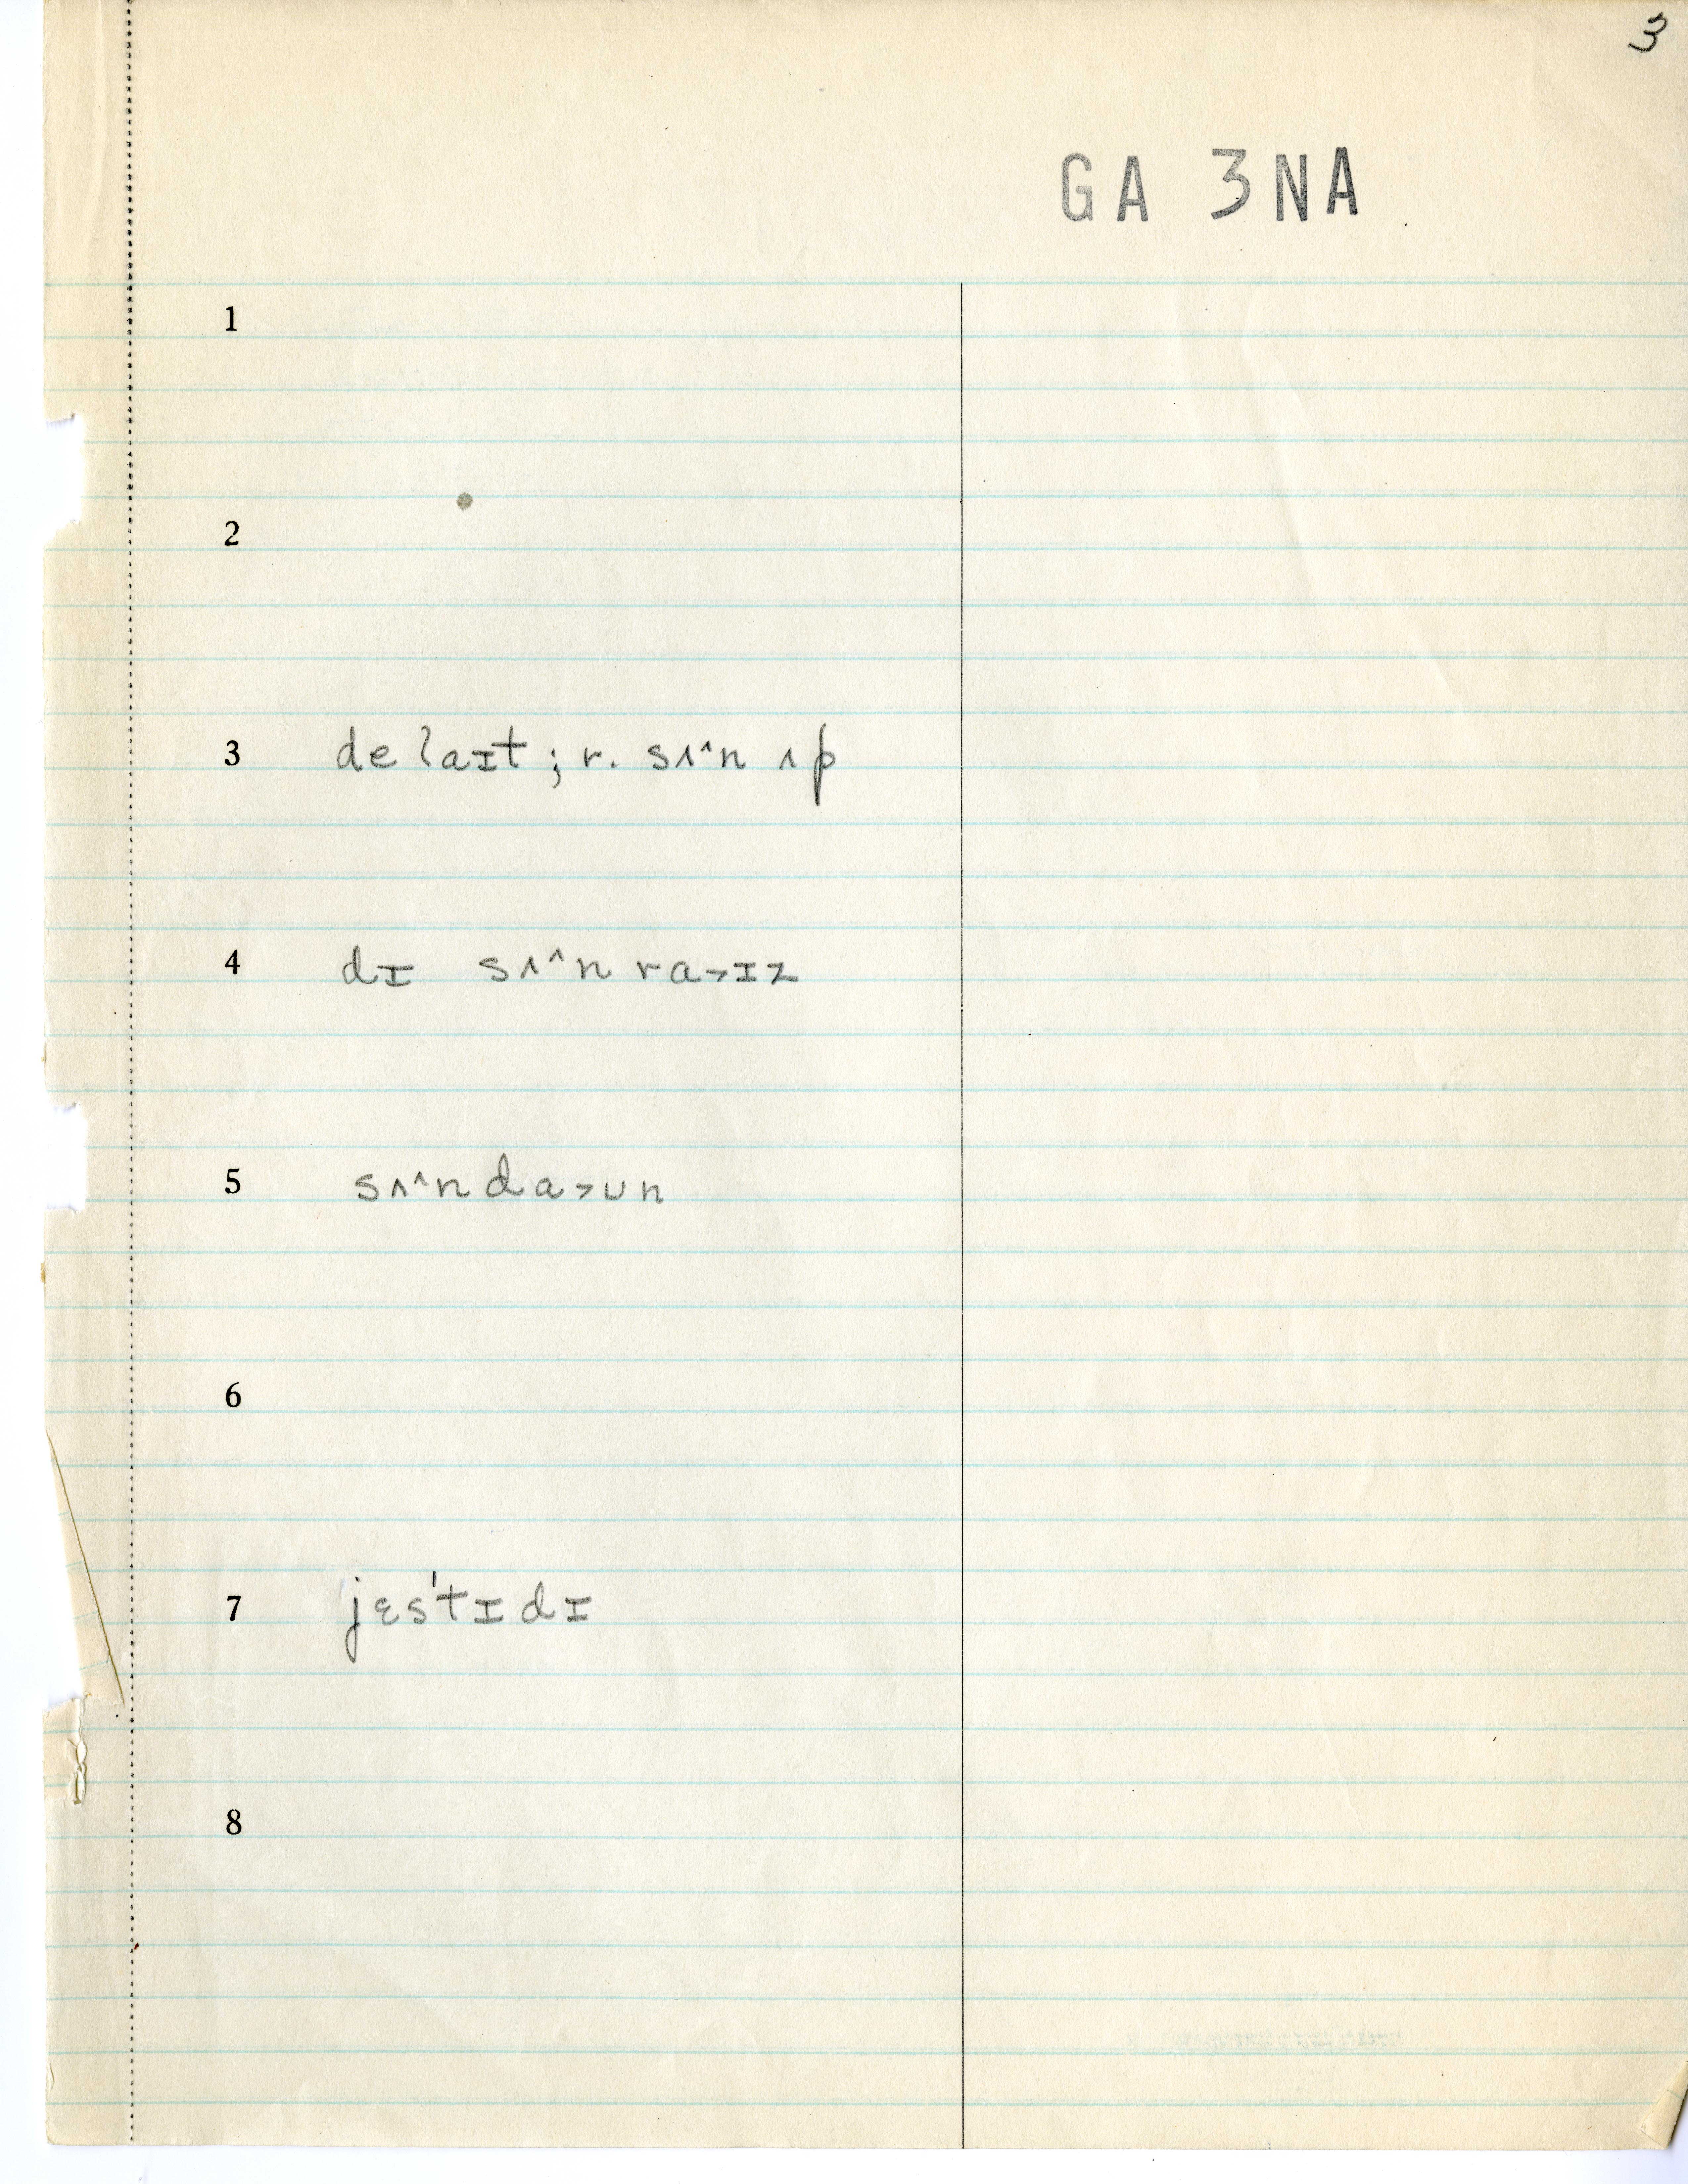 3
GA 3NA
1
2
3 de laɪt ; r. sʌ^n ʌp
4 dɪ sʌ^n ra>ɪz
5 sʌ^n da>ʊn
6
7 jɛs'tɪdɪ
8